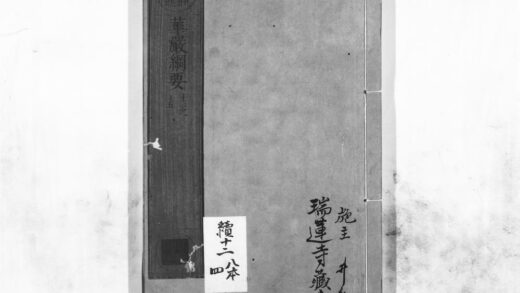 華嚴綱要
施主 井
瑞蓮寺藏
續十二 八本
四